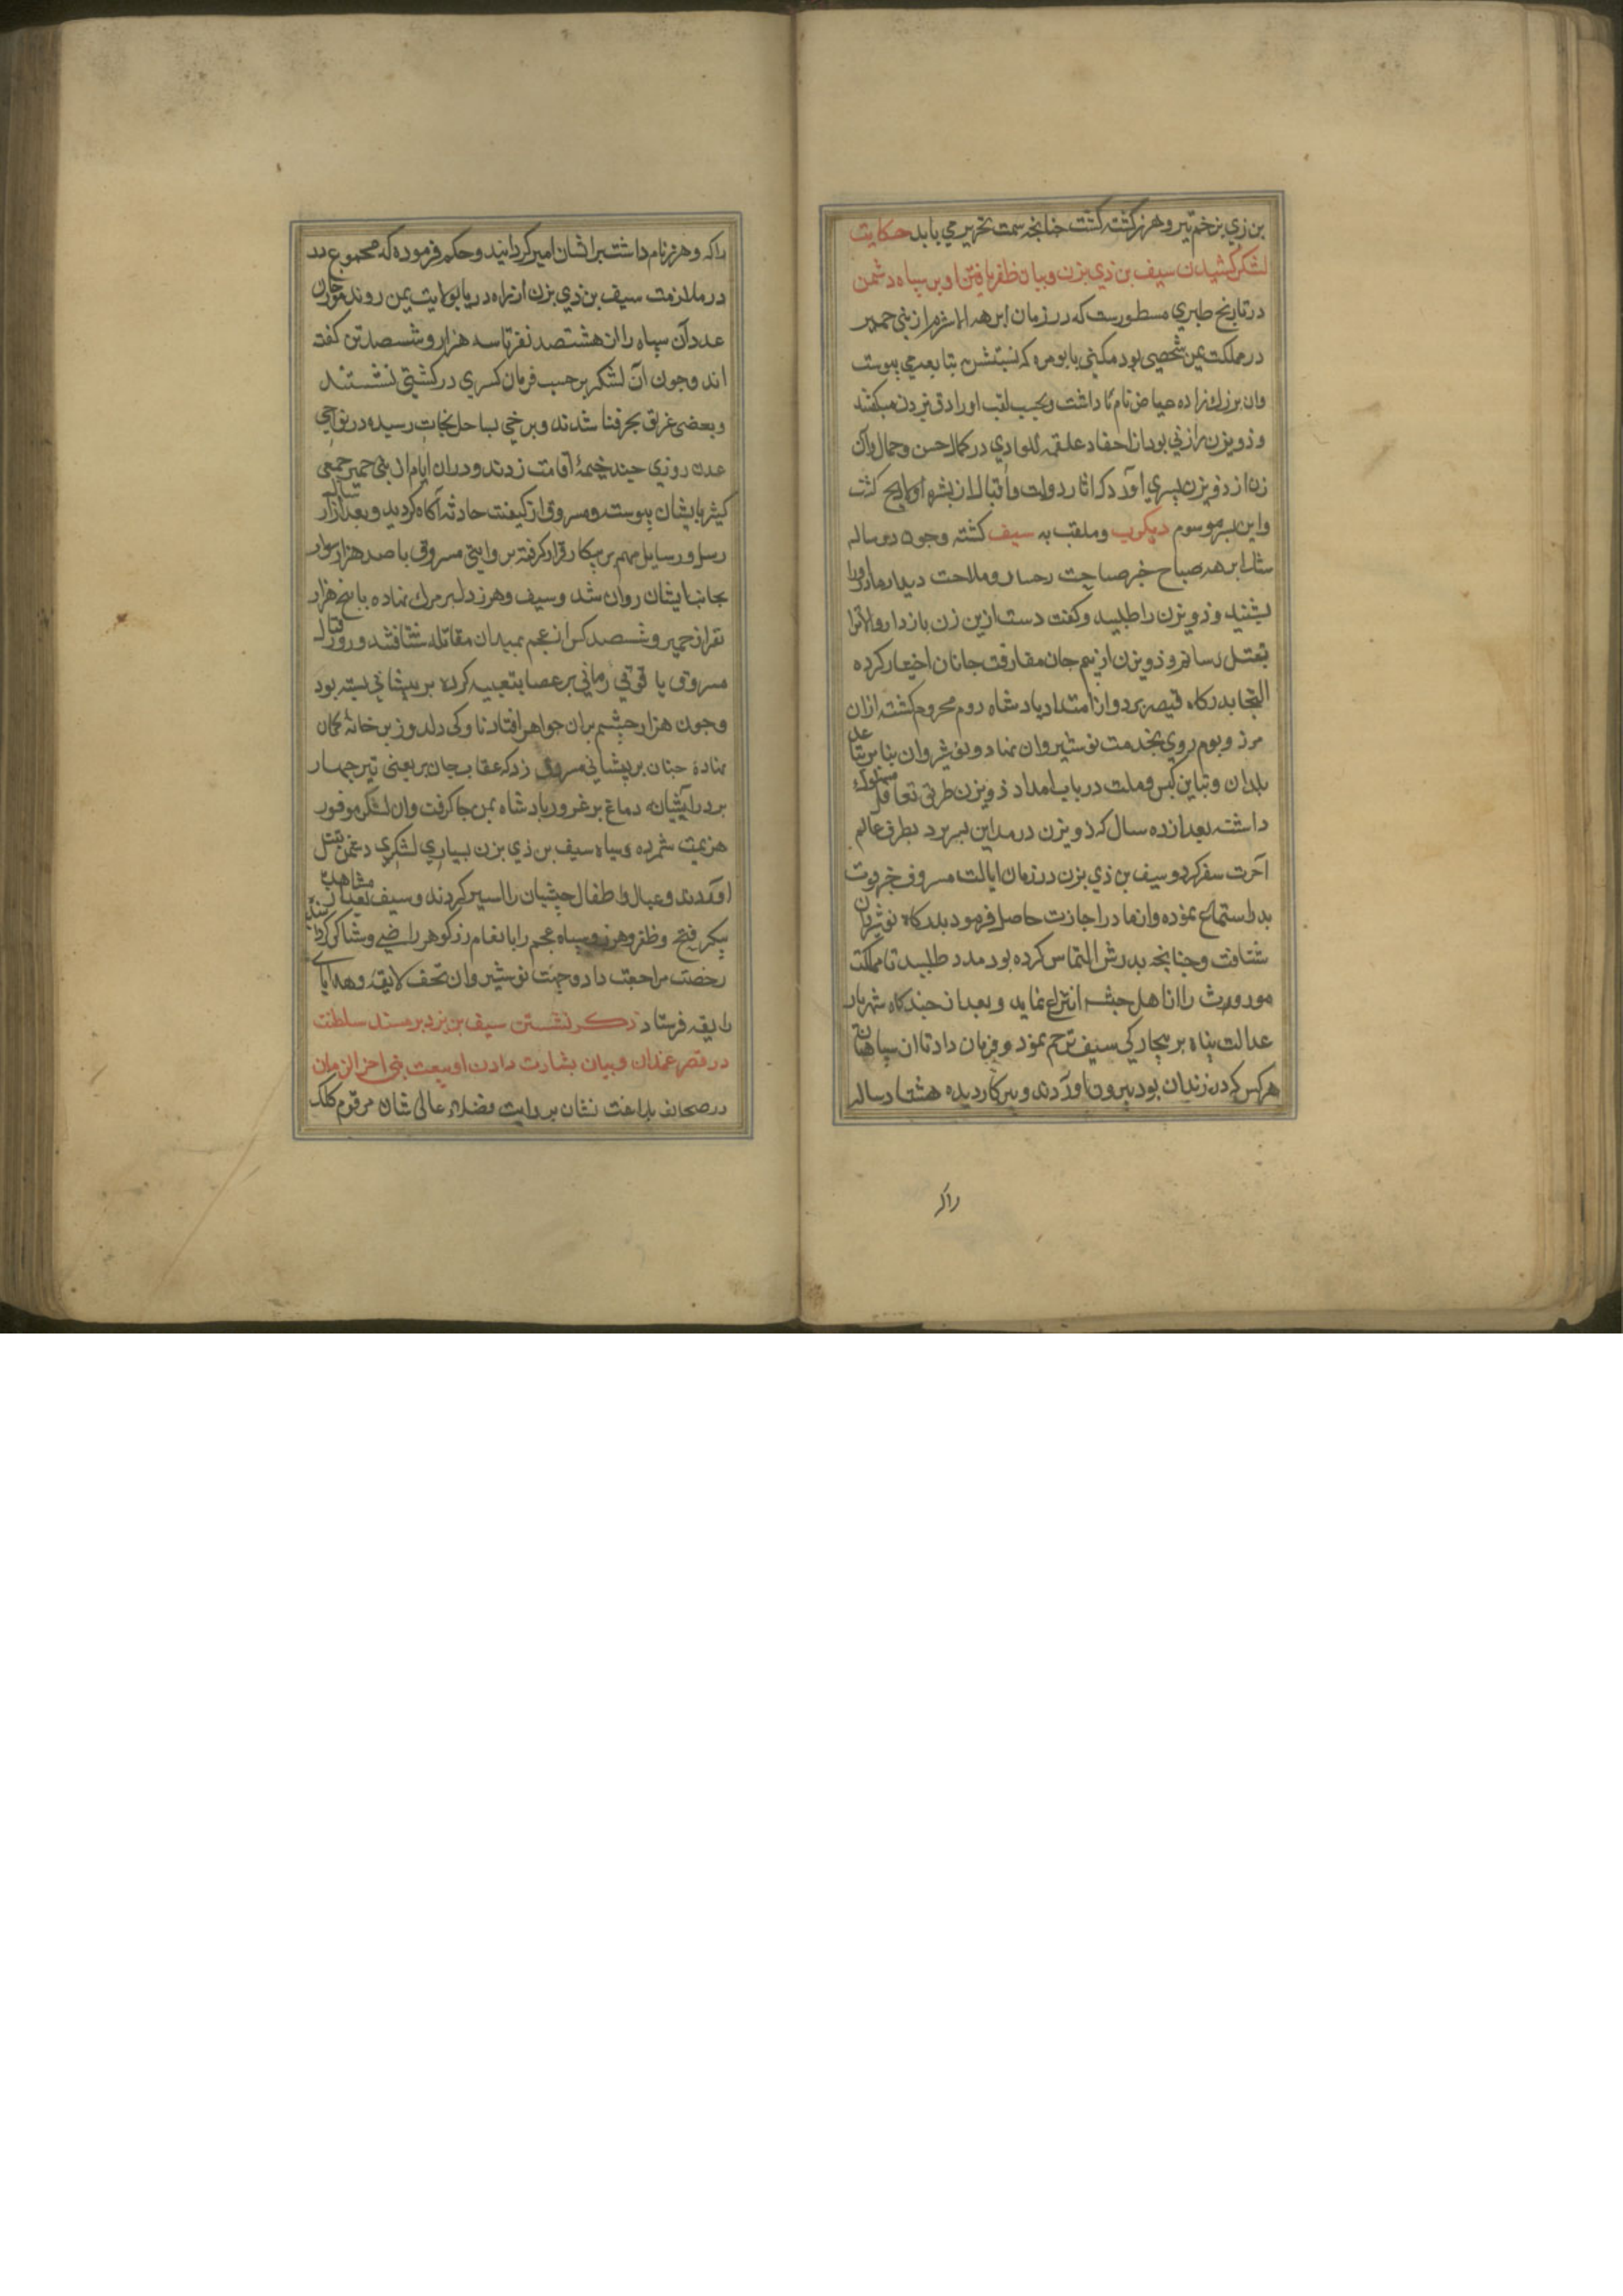 بن زي بزخم تیر وهرز کشته کشت جنانجه سمت تحریر می یابد حکایت
لشکر کشیدن سیف بن ذي یزن و بیان ظفر یافتن او بر سپاه دشمن
در تاریخ طبري مسطورست که در زمان ابرهه الاشرم از بنی حمیر
در مملکت یمن شخصی بود مکنی بابو مره که نسبتش بتابعه می پیوست
وان بزرك زاده نام داشت و بحسب لقب اورا ذو یزن میکفتند
و ذو یزن را زنی بود از احفاد علقمه در کمال حسن و جمال وآن
زن از ذو یزن پسري آورد که اثار دولت و اقبال از بشره او لایح کشت
و این پسر موسوم و ملقب به سیف کشته وجون دو ساله
شد ابرهه صباح خبر صباحت و ملاحت مادر اورا
بشنید و ذو یزن را طلبید و کفت دست ازین زن بازدار والا ترا
بقتل رسانم و ذو یزن از بیم جان مفارقت جانان اختیار کرده
التجا بدرکاه قیصر برد و از امداد پادشاه روم محروم کشته ازان
مرز و بوم روي بخدمت نوشیروان نهاد و نوشیروان بنابر تباعد
بلدان و تباین کیش و ملت در باب امداد ذو یزن طریق تغافل مسلوك
داشته بعد از ده سال که ذو یزن در مداین بسر برد بطرف عالم
آخرت سفر کرد و سیف بن ذي یزن در زمان ایالت مسروق خبر فوت
پدر استماع نموده و از مادر اجازت حاصل فرمود بدرکاه نوشیروان
شتافت و جنانجه پدرش التماس کرده بود مدد طلبید تا مملکت
موروث را از اهل حبشه انتزاع نماید و بعد از جندکاه شهریار
عدالت پناه بر بیجارکی سیف ترحم نمود و فرمان داد تا از سپاهیان
هرکس که در زندان بود بیرون آوردند و پیر کار دیده هشتاد ساله
راکه
راکه وهرز نام داشت بر ایشان امیر کردانید و حکم فرموده که مجموع
در ملازمت سیف بن ذي یزن از راه دریا بولایت یمن روند مورخان
عدد آن سپاه را از هشتصد نفر تا سه هزار و ششصد تن کفته
اند وجون آن لشکر بر حسب فرمان کسري در کشتی نشستند
و بعضی غریق بحر فنا شدند و برخی بساحل نجات رسیده در نواحی
عدن روزي جند خیمهٔ اقامت زدند و دران ایام از بنی حمیر جمعی
کثیر بایشان پیوستند و مسروق از کیفیت حادثه آکاه کردید و بعد از ارسال
رسل و رسایل مهم بر پیکار قرار کرفته بروایتی مسروق با صد هزار سوار
بجانب ایشان روان شد و سیف وهرز دل بر مرك نهاده با پنج هزار
نفر از حمیر و ششصد کس از عجم بمیدان مقاتله شتافتند و روز قتال
مسروق یا قوتی رمانی بر عصابه تعبیه کرده بر پیشانی بسته بود
وجون هزار جشم بران جواهر افتاد ناوکی دلدوز بر خانهٔ کمان
نهاده جنان بر پیشانی مسروق زد که عقاب جان بر یعنی تیر جهار
بر در آشیانه دماغ پر غرور پادشاه یمن جا کرفت وان لشکر موفور
هزیمت شمرده و سپاه سیف بن ذي یزن بسیاري لشکري دشمن بقتل
آوردند و عیال و اطفال حبشیان را اسیر کردند و سیف بعد از مشاهده
پیکر فتح و ظفر وهرز و سپاه عجم را بانعام زر کوهر راضی و شاکر کردانیده
رخصت مراجعت داد و جهت نوشیروان تحف لایقه و هدایاي
رایقه فرستاد ذکر نشستن سیف بن یزد بر مسند سلطنت
در قصر غمدان و بیان بشارت دادن او ببعثت نبی اخر الزمان
در صحایف بلاغت نشان بروایت فضلاء عالی شان مرقوم کلك